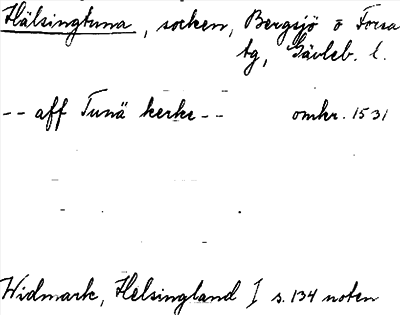 Hälsingtuna, socken, Bergsjö o Forsa
tg, Gävleb. l.
-- aff Tunä kerke -- omkr. 1531
Widmark, Helsingland I s. 134 noten